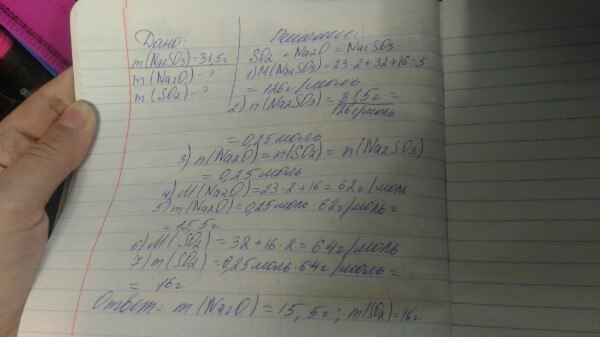 Дано:
m(Na2SO3)=31,5г
m(Na2O)-?
m(SO2)-?
Решение:
SO2 + Na2O = Na2SO3
1) M(Na2SO3)=23·2+32+16·3
= 126г/моль
2) n(Na2SO3) = 31,5г / 126г/моль =
= 0,25 моль
3) n(Na2O) = n(SO2) = n(Na2SO3)
= 0,25 моль
4) M(Na2O)=23·2+16=62г/моль
5) m(Na2O)=0,25моль·62г/моль=
= 15,5г
6) M(SO2)=32+16·2=64г/моль
7) m(SO2)=0,25моль·64г/моль=
= 16г
Ответ: m(Na2O)=15,5г; m(SO2)=16г